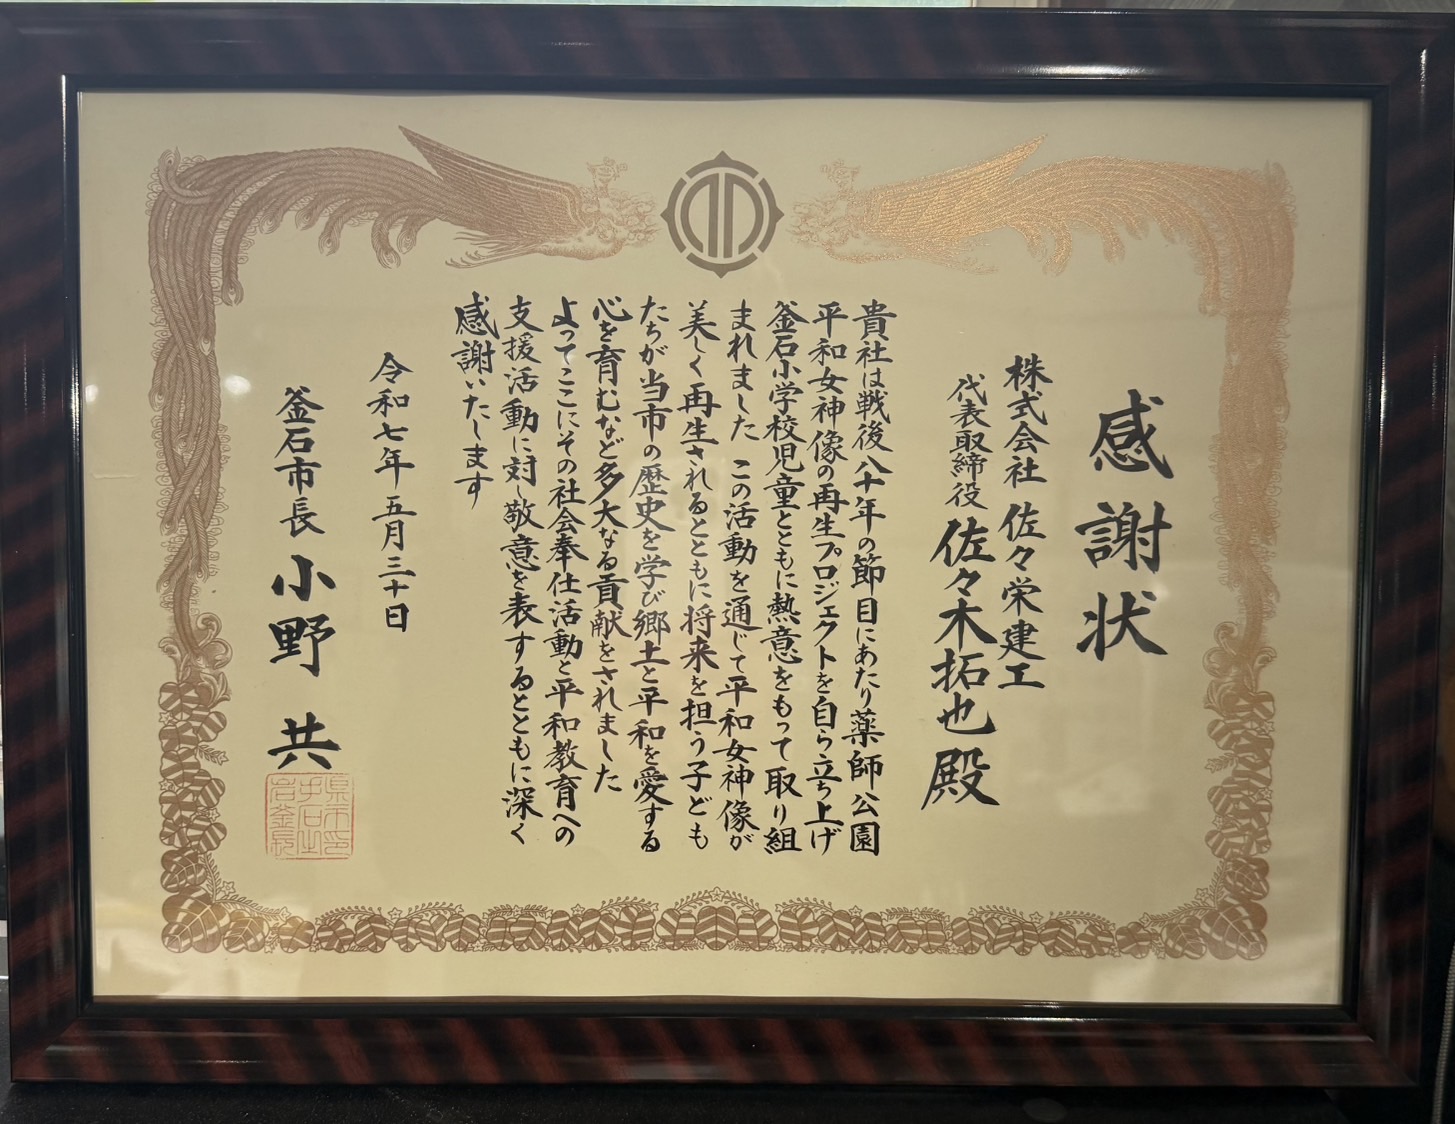 感謝状
株式会社 佐々栄建工
代表取締役 佐々木拓也 殿
貴社は戦後八十年の節目にあたり薬師公園
平和女神像の再生プロジェクトを自ら立ち上げ
釜石小学校児童とともに熱意をもって取り組
まれました この活動を通じて平和女神像が
美しく再生されるとともに将来を担う子ども
たちが当市の歴史を学び郷土と平和を愛する
心を育むなど多大なる貢献をされました
よってここにその社会奉仕活動と平和教育への
支援活動に対し敬意を表するとともに深く
感謝いたします
令和七年 五月三十日
釜石市長 小野 共